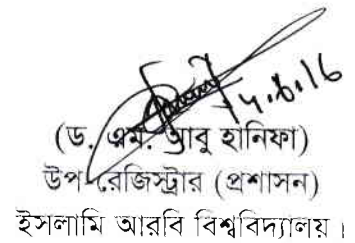 (ড. এম. আবু হানিফা)
উপ-রেজিস্ট্রার (প্রশাসন)
ইসলামি আরবি বিশ্ববিদ্যালয়।